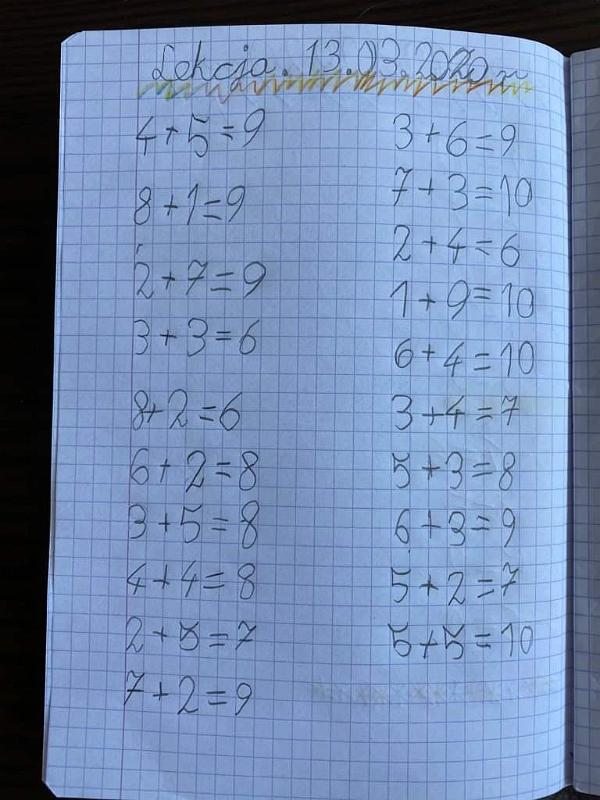 Lekcja. 13.03.2020 r
4+5=9
8+1=9
2+7=9
3+3=6
8+2=6
6+2=8
3+5=8
4+4=8
2+5=7
7+2=9
3+6=9
7+3=10
2+4=6
1+9=10
6+4=10
3+4=7
5+3=8
6+3=9
5+2=7
5+5=10